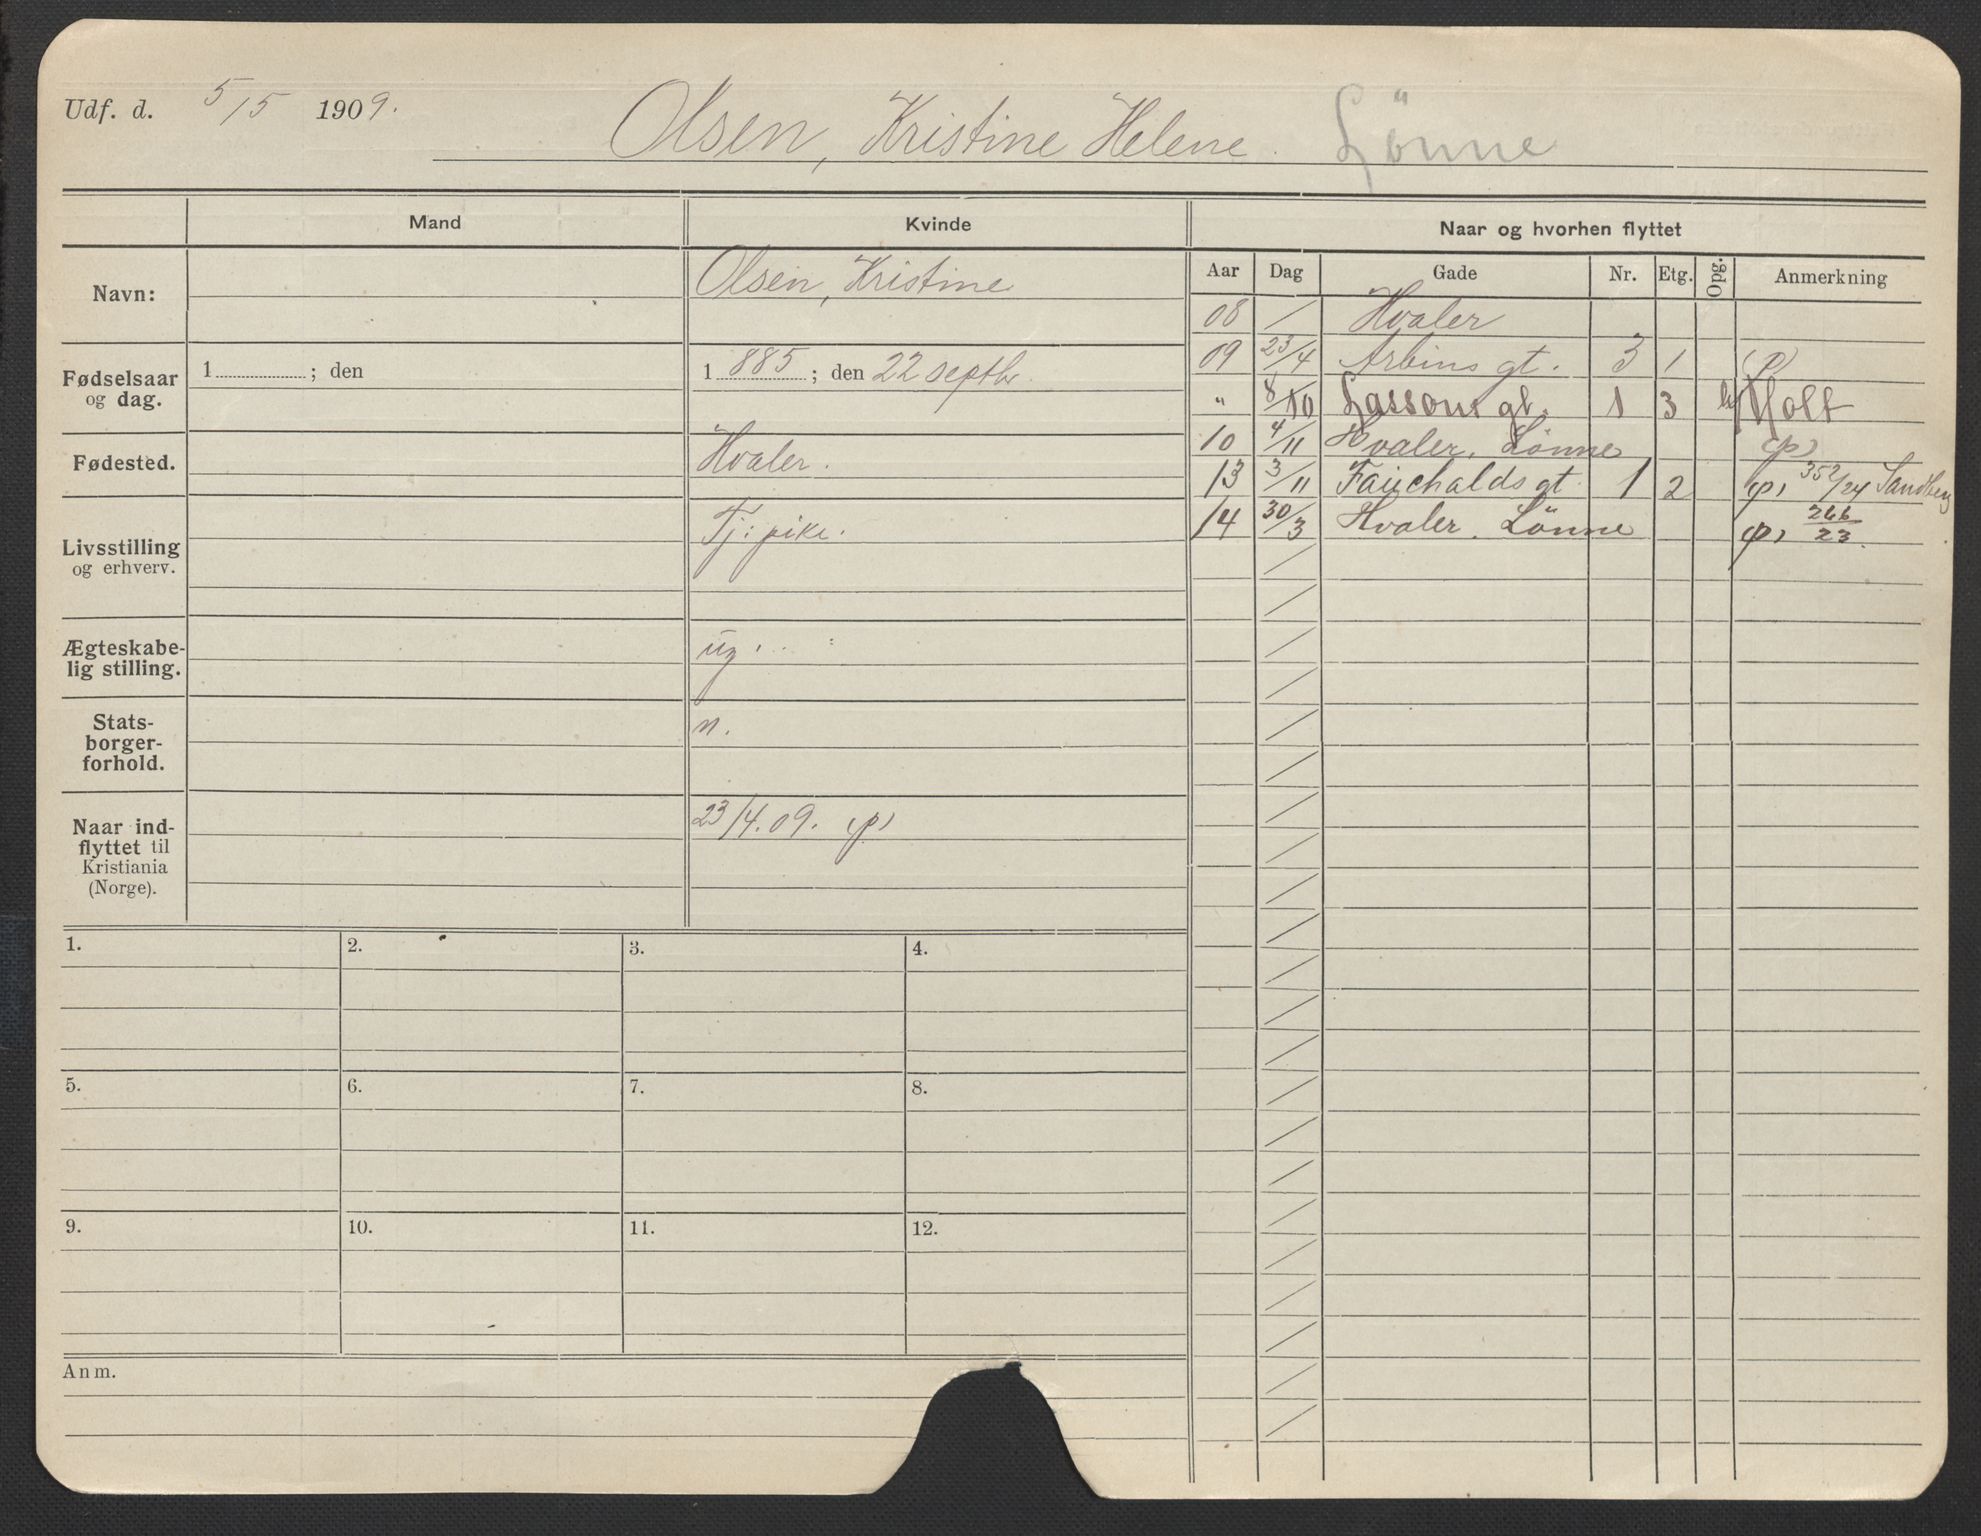 Udf. d. 5/5 1909.
Olsen, Kristine Helene. Lönne
Mand
Kvinde
Naar og hvorhen flyttet
Aar Dag Gade Nr. Etg. Opg. Anmerkning
Navn:
Olsen, Kristine
Fødselsaar
og dag.
1 ; den
1 885 ; den 22 septbr.
Fødested.
Hvaler.
Livsstilling
og erhverv.
Tj: pike.
Ægteskabe-
lig stilling.
ug.
Stats-
borger-
forhold.
n.
Naar ind-
flyttet til
Kristiania
(Norge).
23/4.09. (p)
08 / Hvaler
09 23/4 Arbins gt. 3 1 (p)
" 8/10 Lassons gt. 1 3 Holt
10 4/11 Hvaler. Lønne (p)
13 3/11 Fauchalds gt. 1 2 (p) 352/24 Sandberg
14 30/3 Hvaler. Lönne (p) 266/23.
1. 2. 3. 4.
5. 6. 7. 8.
9. 10. 11. 12.
Anm.